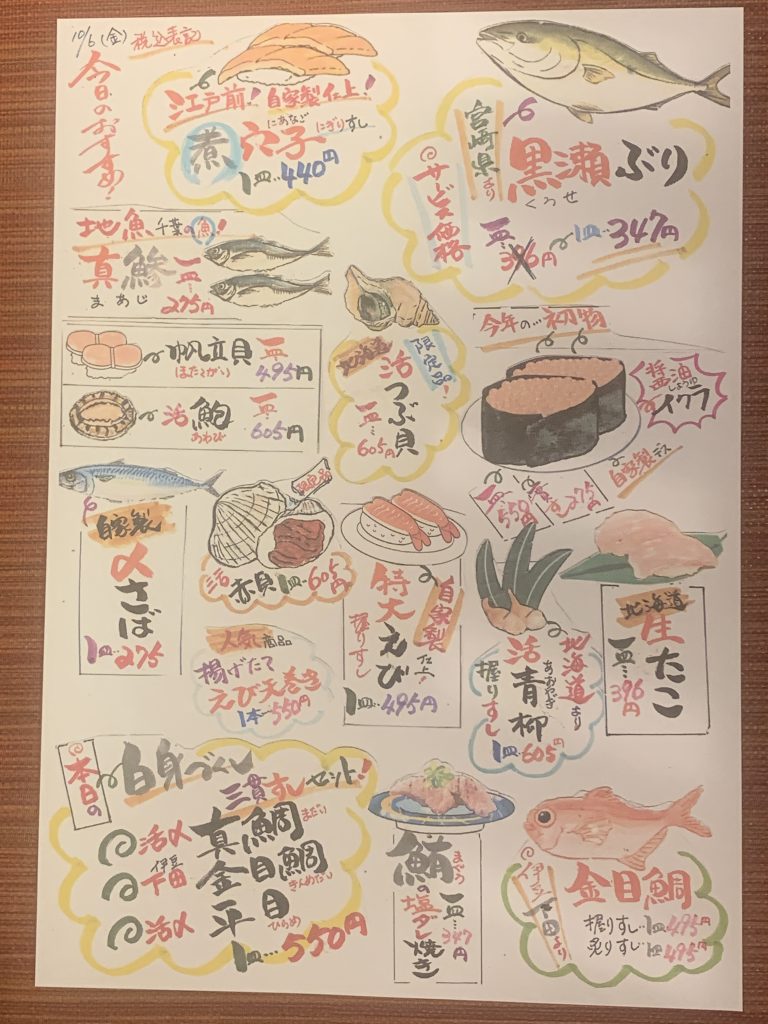 10/6(金) 税込表記
今日のおすすめ!
江戸前!自家製仕上!
にあなご
煮穴子 にぎりすし
1皿…440円
宮崎県より
黒瀬ぶり
くろせ
サービス価格
一皿…396円 1皿…347円
地魚 千葉の魚!
真鯵 一皿…275円
まあじ
帆立貝 一皿…495円
(ほたてがい)
活鮑 一皿…605円
あわび
北海道
限定品!
活つぶ貝
一皿…605円
今年の…初物
醤油
しょうゆ
イクラ
自家製デス
一皿…550円
275円
自家製
〆さば
1皿…275
限定品
活赤貝 1皿…605円
人気商品
揚げたて
えび天巻き
1本…550円
自家製仕上!
特大えび
握りすし
1皿…495円
北海道より
活青柳
あおやぎ
握りすし
1皿…605円
北海道
生たこ
一皿…396円
本日の
白身づくし
三貫すしセット!
活〆 真鯛 まだい
伊豆
下田 金目鯛 きんめだい
活〆 平目 ひらめ
1皿…550円
鮪の塩ダレ焼き
まぐろ
一皿…347円
伊豆下田より
金目鯛
握りすし…1皿495円
炙りすし…1皿495円